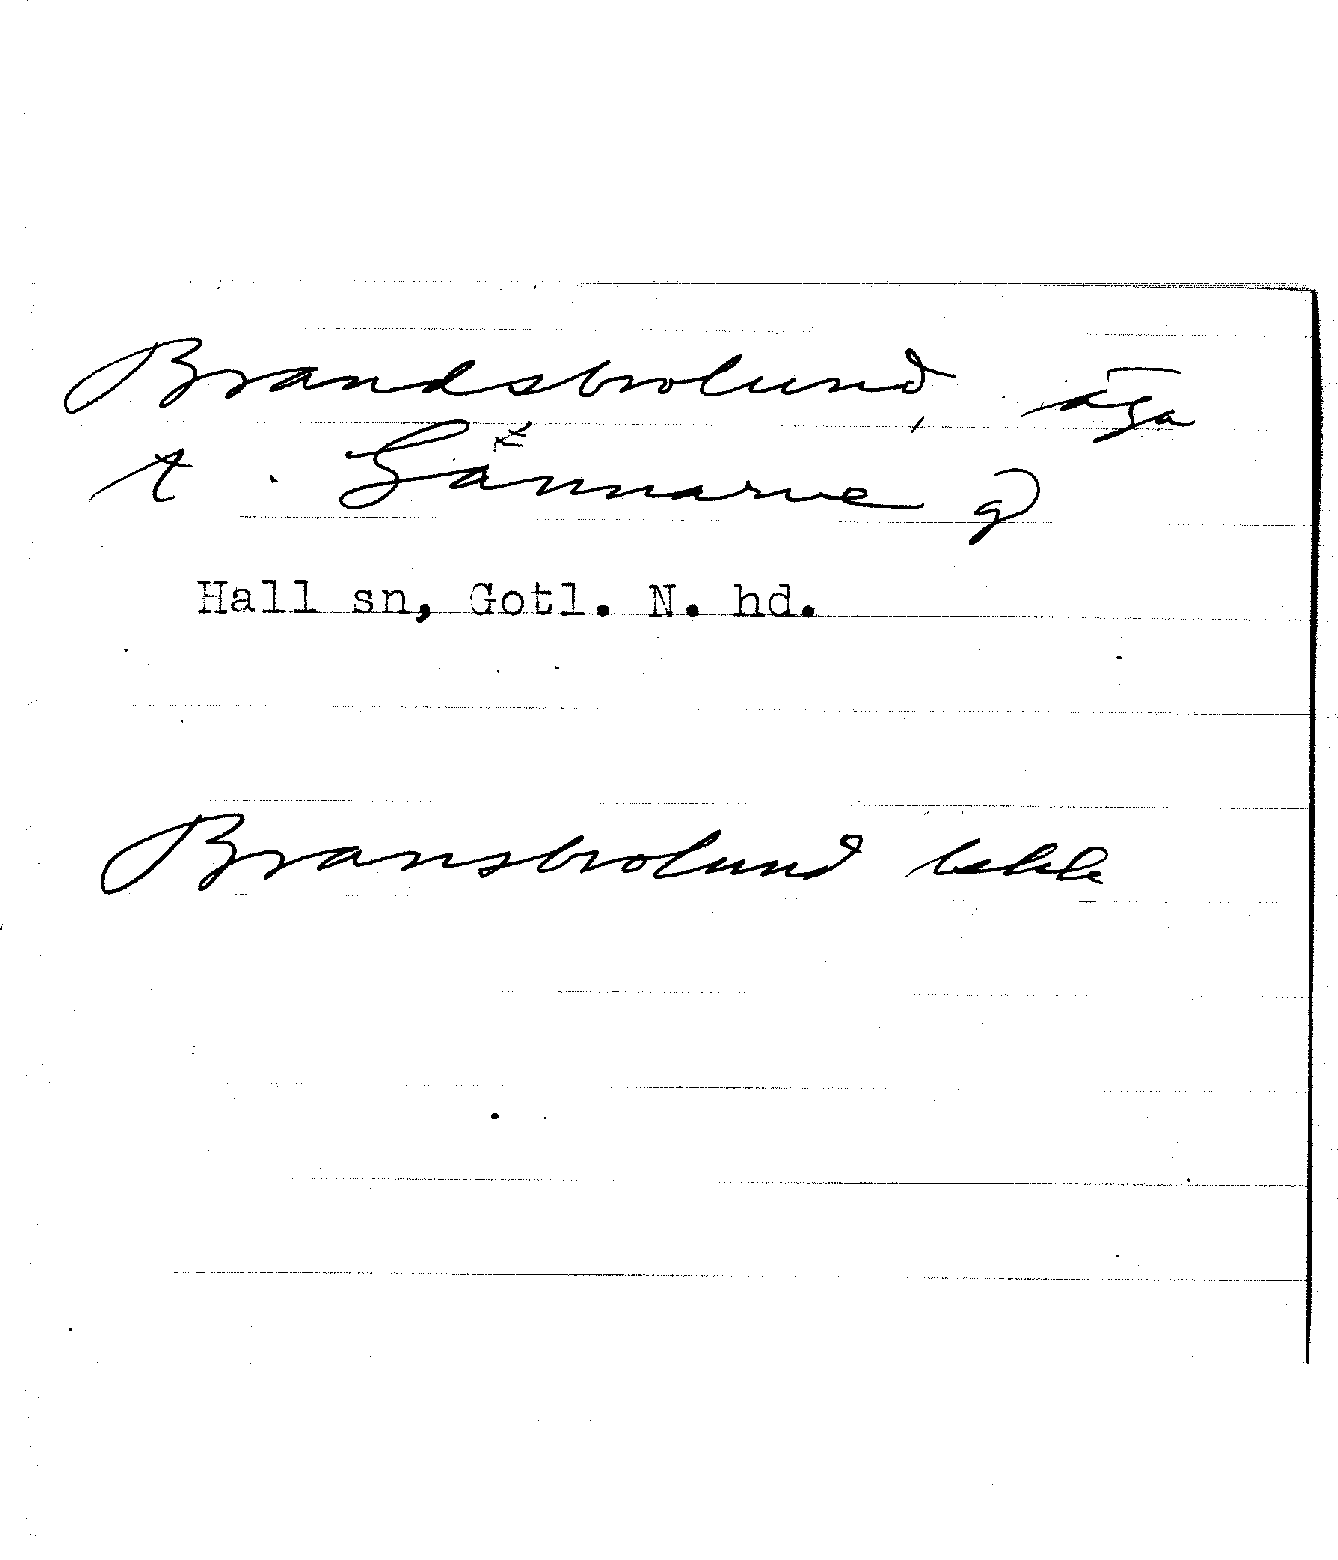 Brandsbrolund, äga
t. Gännarve gd
Hall sn, Gotl. N. hd.
Bransbrolund